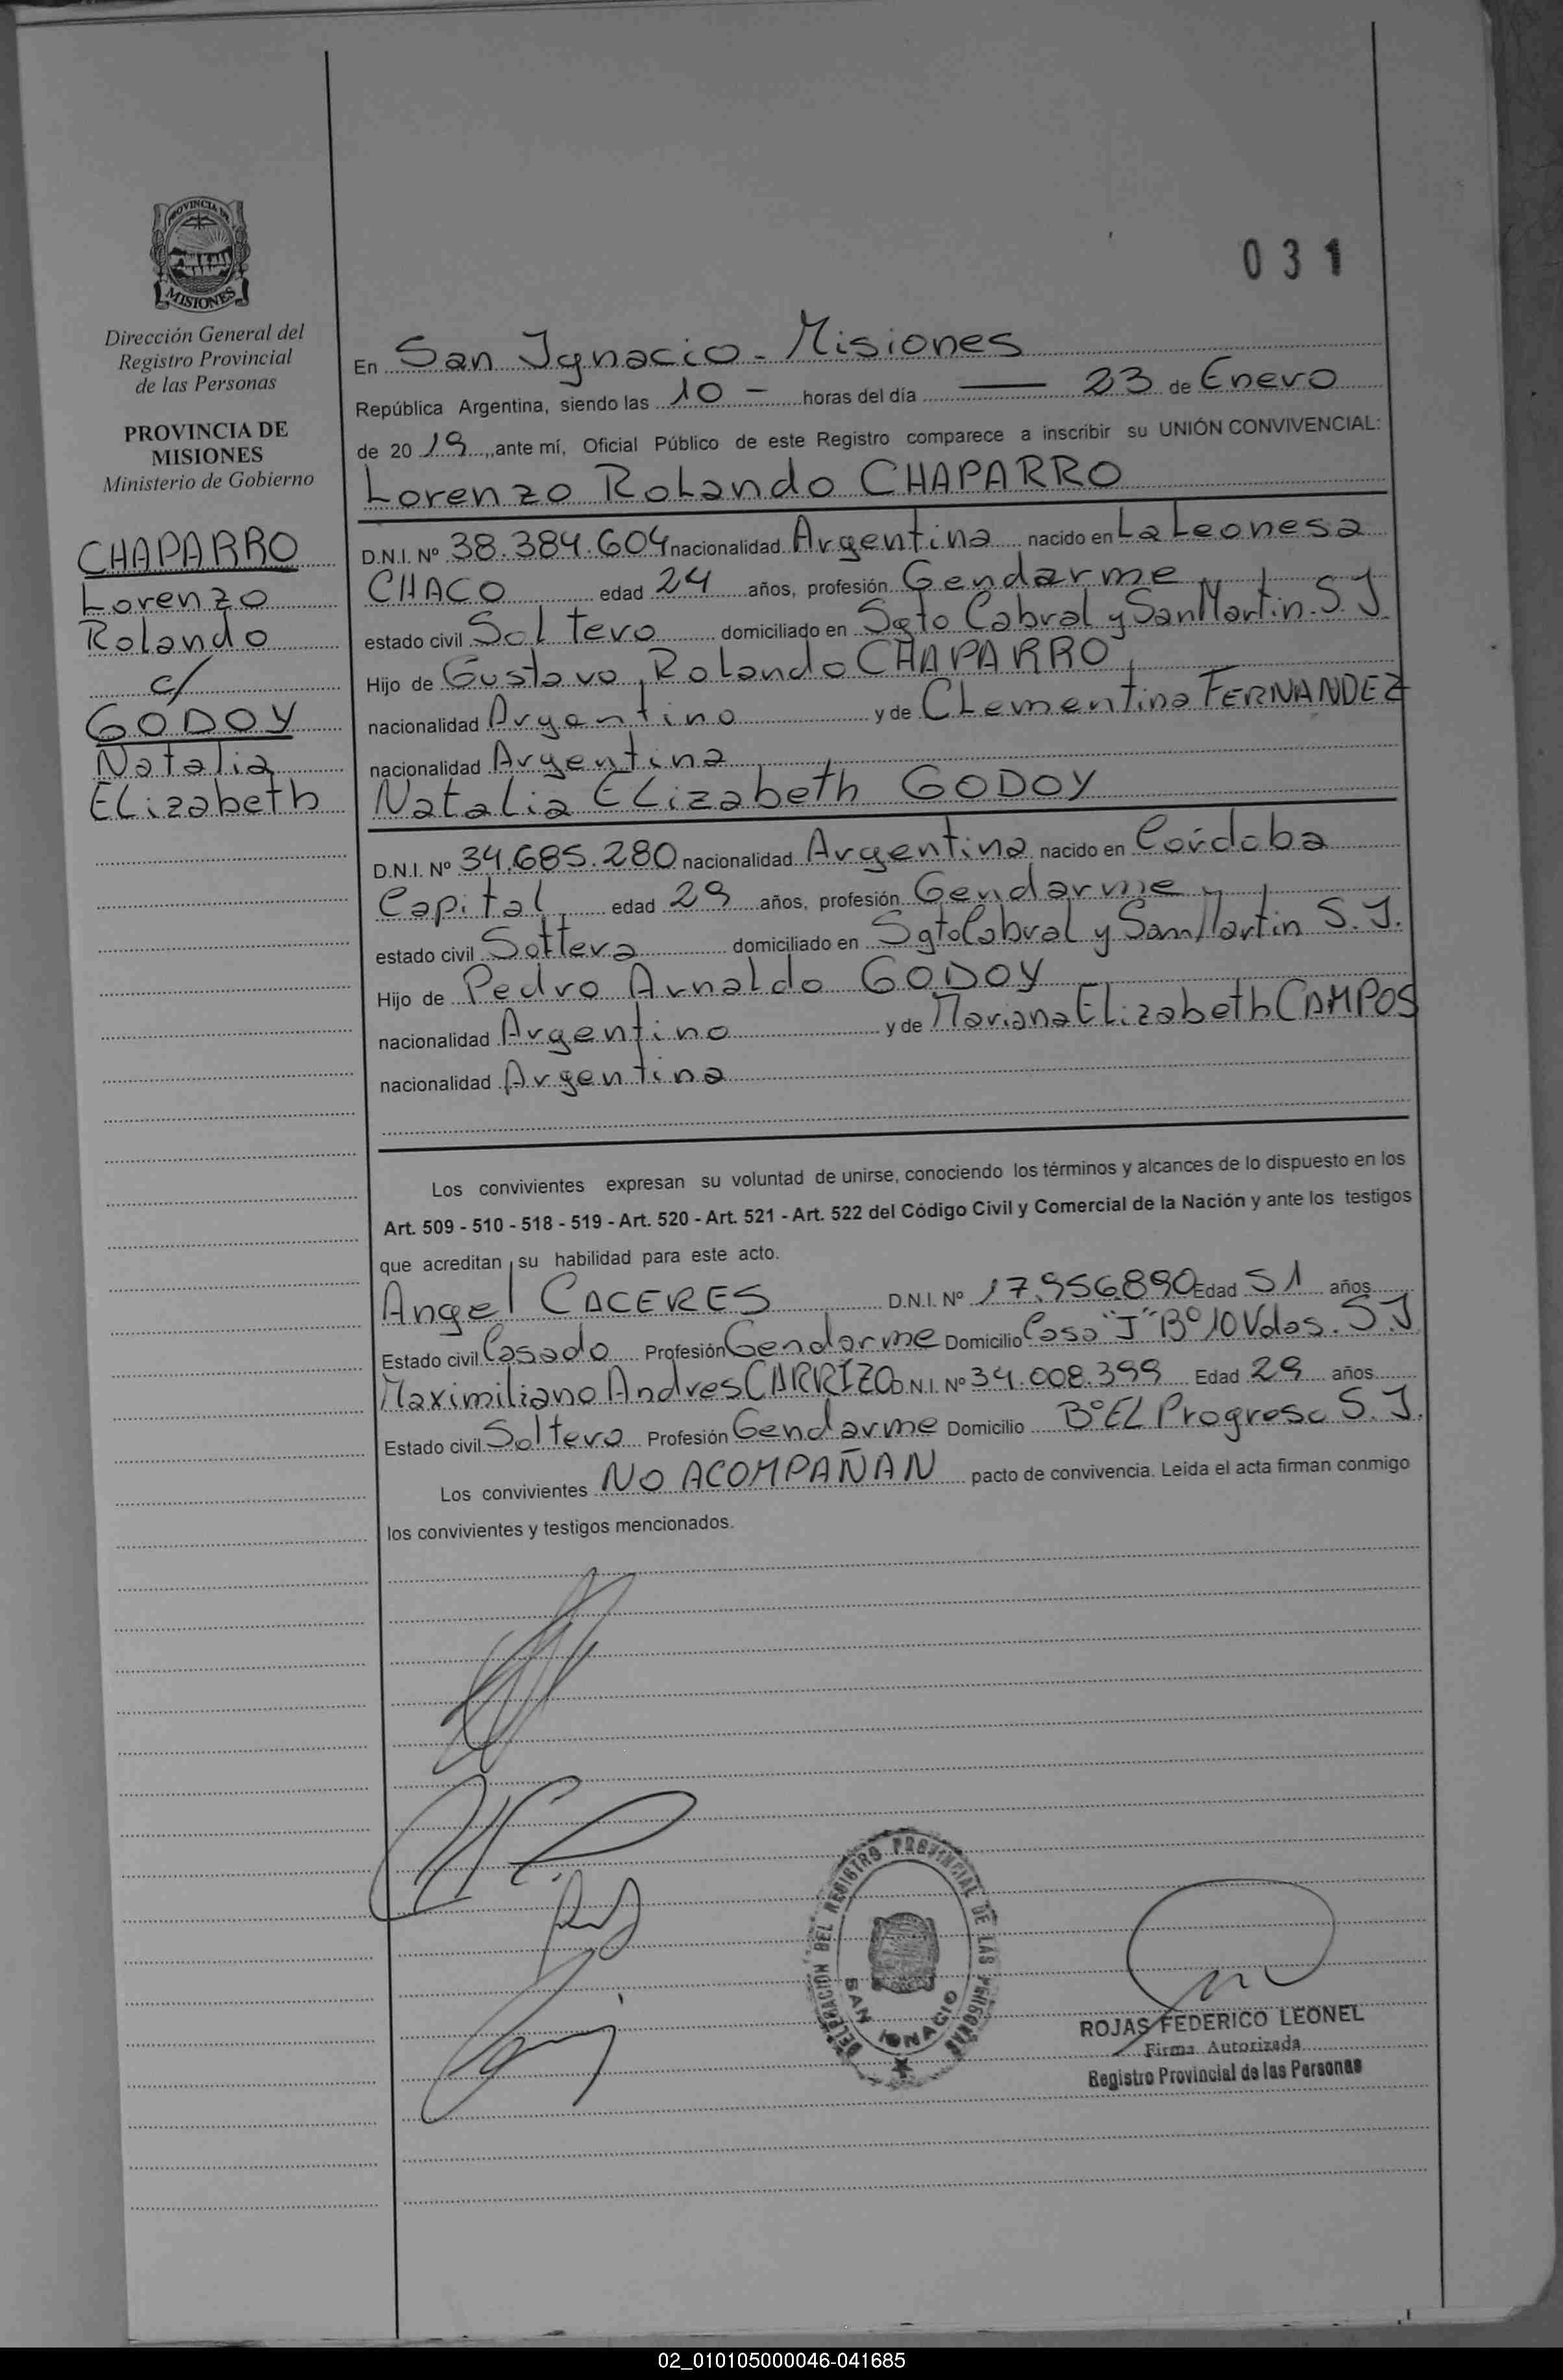 PROVINCIA DE
MISIONES
Dirección General del
Registro Provincial
de las Personas
PROVINCIA DE
MISIONES
Ministerio de Gobierno
CHAPARRO
Lorenzo
Rolando
c/
GODOY
Natalia
Elizabeth
031
En San Ignacio - Misiones
República Argentina, siendo las 10 - horas del día — 23 de Enero
de 2019, ante mí, Oficial Público de este Registro comparece a inscribir su UNIÓN CONVIVENCIAL:
Lorenzo Rolando CHAPARRO
D.N.I. Nº 38.384.604 nacionalidad Argentina nacido en La Leonesa
CHACO edad 24 años, profesión Gendarme
estado civil Soltero domiciliado en Sgto Cabral y San Martin. S. I
Hijo de Gustavo Rolando CHAPARRO
nacionalidad Argentino y de Clementina FERNANDEZ
nacionalidad Argentina
Natalia Elizabeth GODOY
D.N.I. Nº 34.685.280 nacionalidad Argentina nacido en Córdoba
Capital edad 29 años, profesión Gendarme
estado civil Soltera domiciliado en Sgto Cabral y San Martin S. I.
Hijo de Pedro Arnaldo GODOY
nacionalidad Argentino y de Mariana Elizabeth CAMPOS
nacionalidad Argentina
Los convivientes expresan su voluntad de unirse, conociendo los términos y alcances de lo dispuesto en los
Art. 509 - 510 - 518 - 519 - Art. 520 - Art. 521 - Art. 522 del Código Civil y Comercial de la Nación y ante los testigos
que acreditan su habilidad para este acto.
Angel CACERES D.N.I. Nº 17.956.890 Edad 51 años
Estado civil Casado Profesión Gendarme Domicilio Casa "I" Bº 10 Vdas. S. I
Maximiliano Andres CARRIZO D.N.I. Nº 34.008.399 Edad 29 años
Estado civil Soltero Profesión Gendarme Domicilio Bº EL Progreso S. I.
Los convivientes NO ACOMPAÑAN pacto de convivencia. Leída el acta firman conmigo
los convivientes y testigos mencionados.
DELEGACION DEL REGISTRO PROVINCIAL DE LAS PERSONAS
SAN IGNACIO
ROJAS FEDERICO LEONEL
Firma Autorizada
Registro Provincial de las Personas
02_010105000046-041685